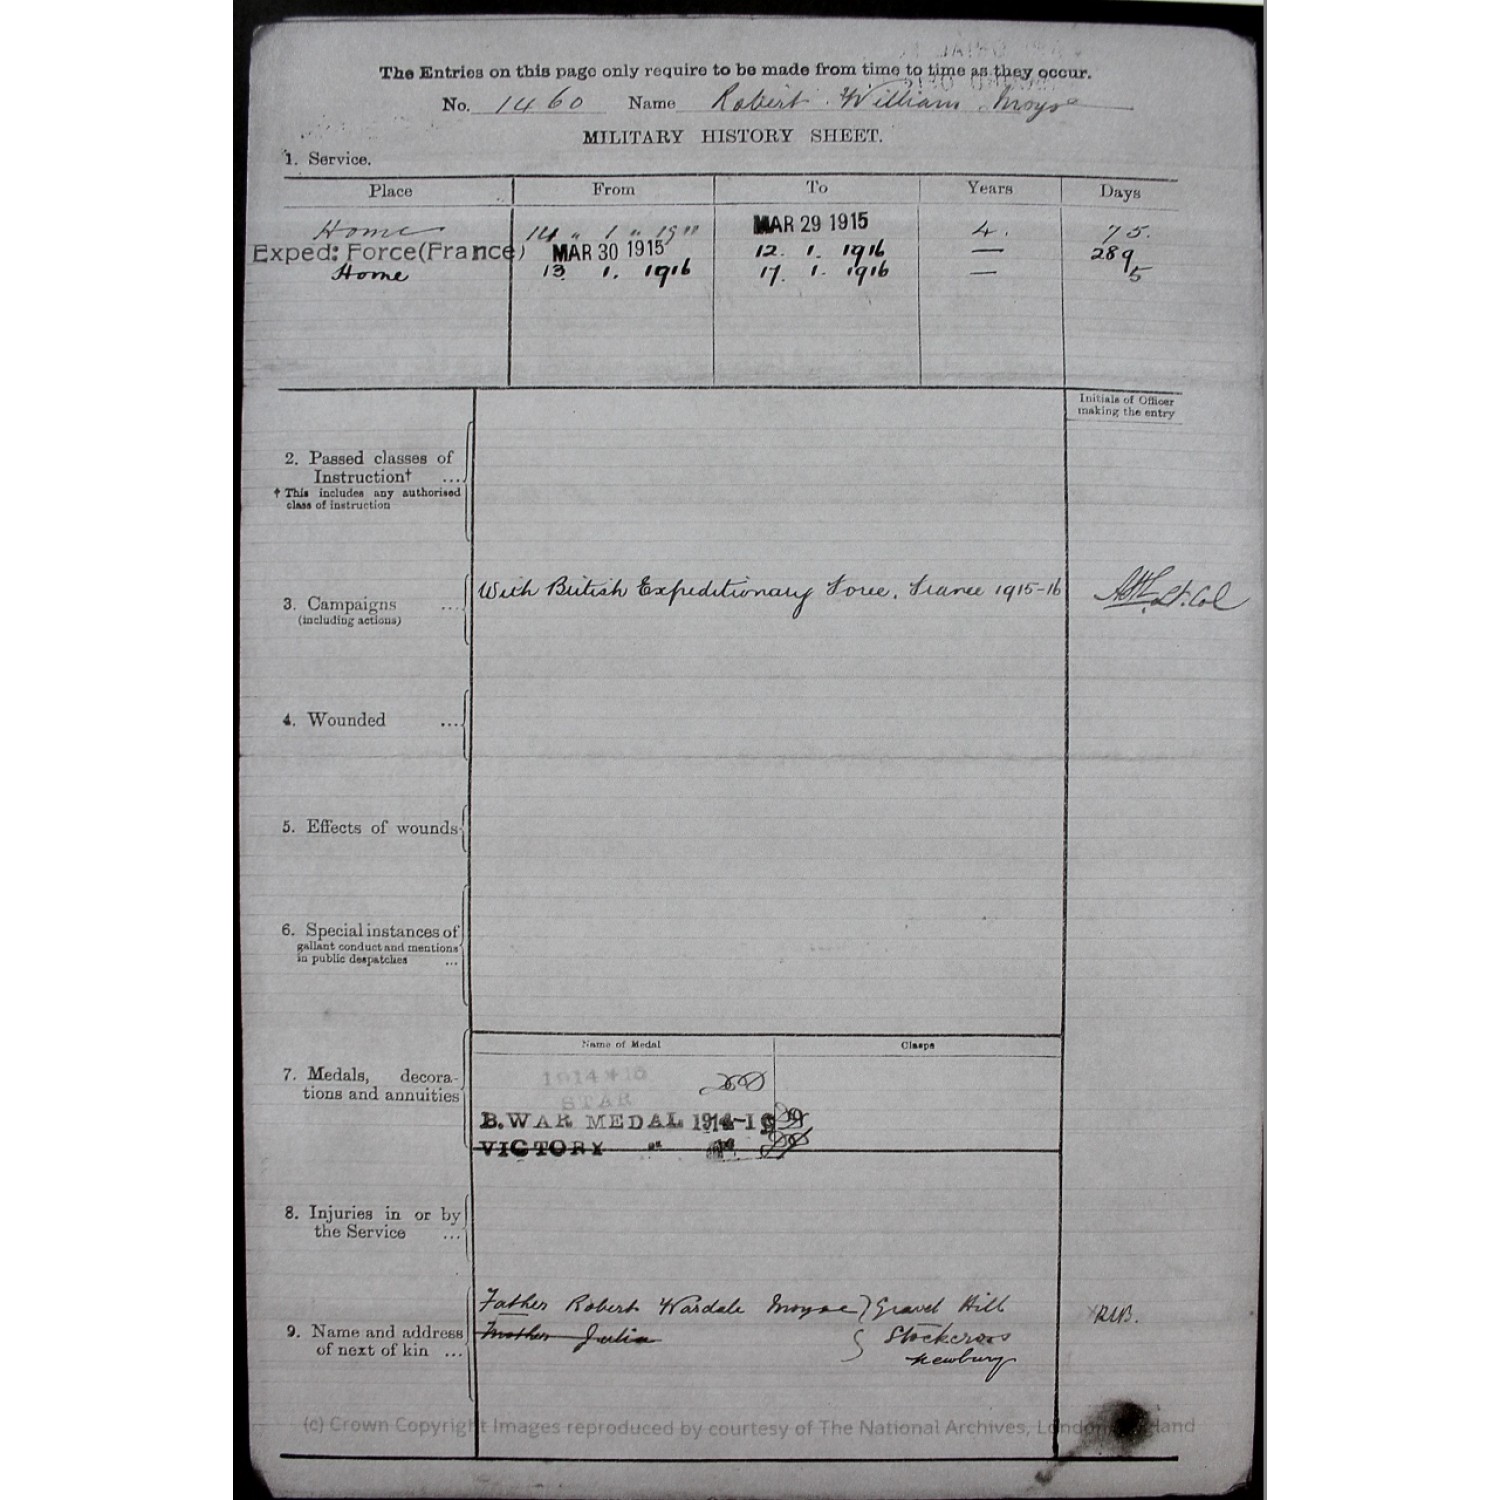 The Entries on this page only require to be made from time to time as they occur.
No. 1460 Name Robert William Moyse
MILITARY HISTORY SHEET.
1. Service.
Place From To Years Days
Home 14 " 1 " 1911 MAR 29 1915 4. 75.
Exped: Force (France) MAR 30 1915 12. 1. 1916 — 289
Home 13. 1. 1916 17. 1. 1916 — 5
Initials of Officer
making the entry
2. Passed classes of
Instruction† ...
† This includes any authorised
class of instruction
3. Campaigns ... With British Expeditionary Force, France 1915-16 Lt. Col
(including actions)
4. Wounded ...
5. Effects of wounds
6. Special instances of
gallant conduct and mentions
in public despatches ...
Name of Medal Clasps
7. Medals, decora-
tions and annuities
1914 * 15
STAR
B. WAR MEDAL 1914-19
VICTORY "
8. Injuries in or by
the Service ...
9. Name and address
of next of kin ...
Father Robert Wardale Moyse } Gravel Hill
Mother Julia Stockcross
Newbury
RUB.
(c) Crown Copyright Images reproduced by courtesy of The National Archives, London, England